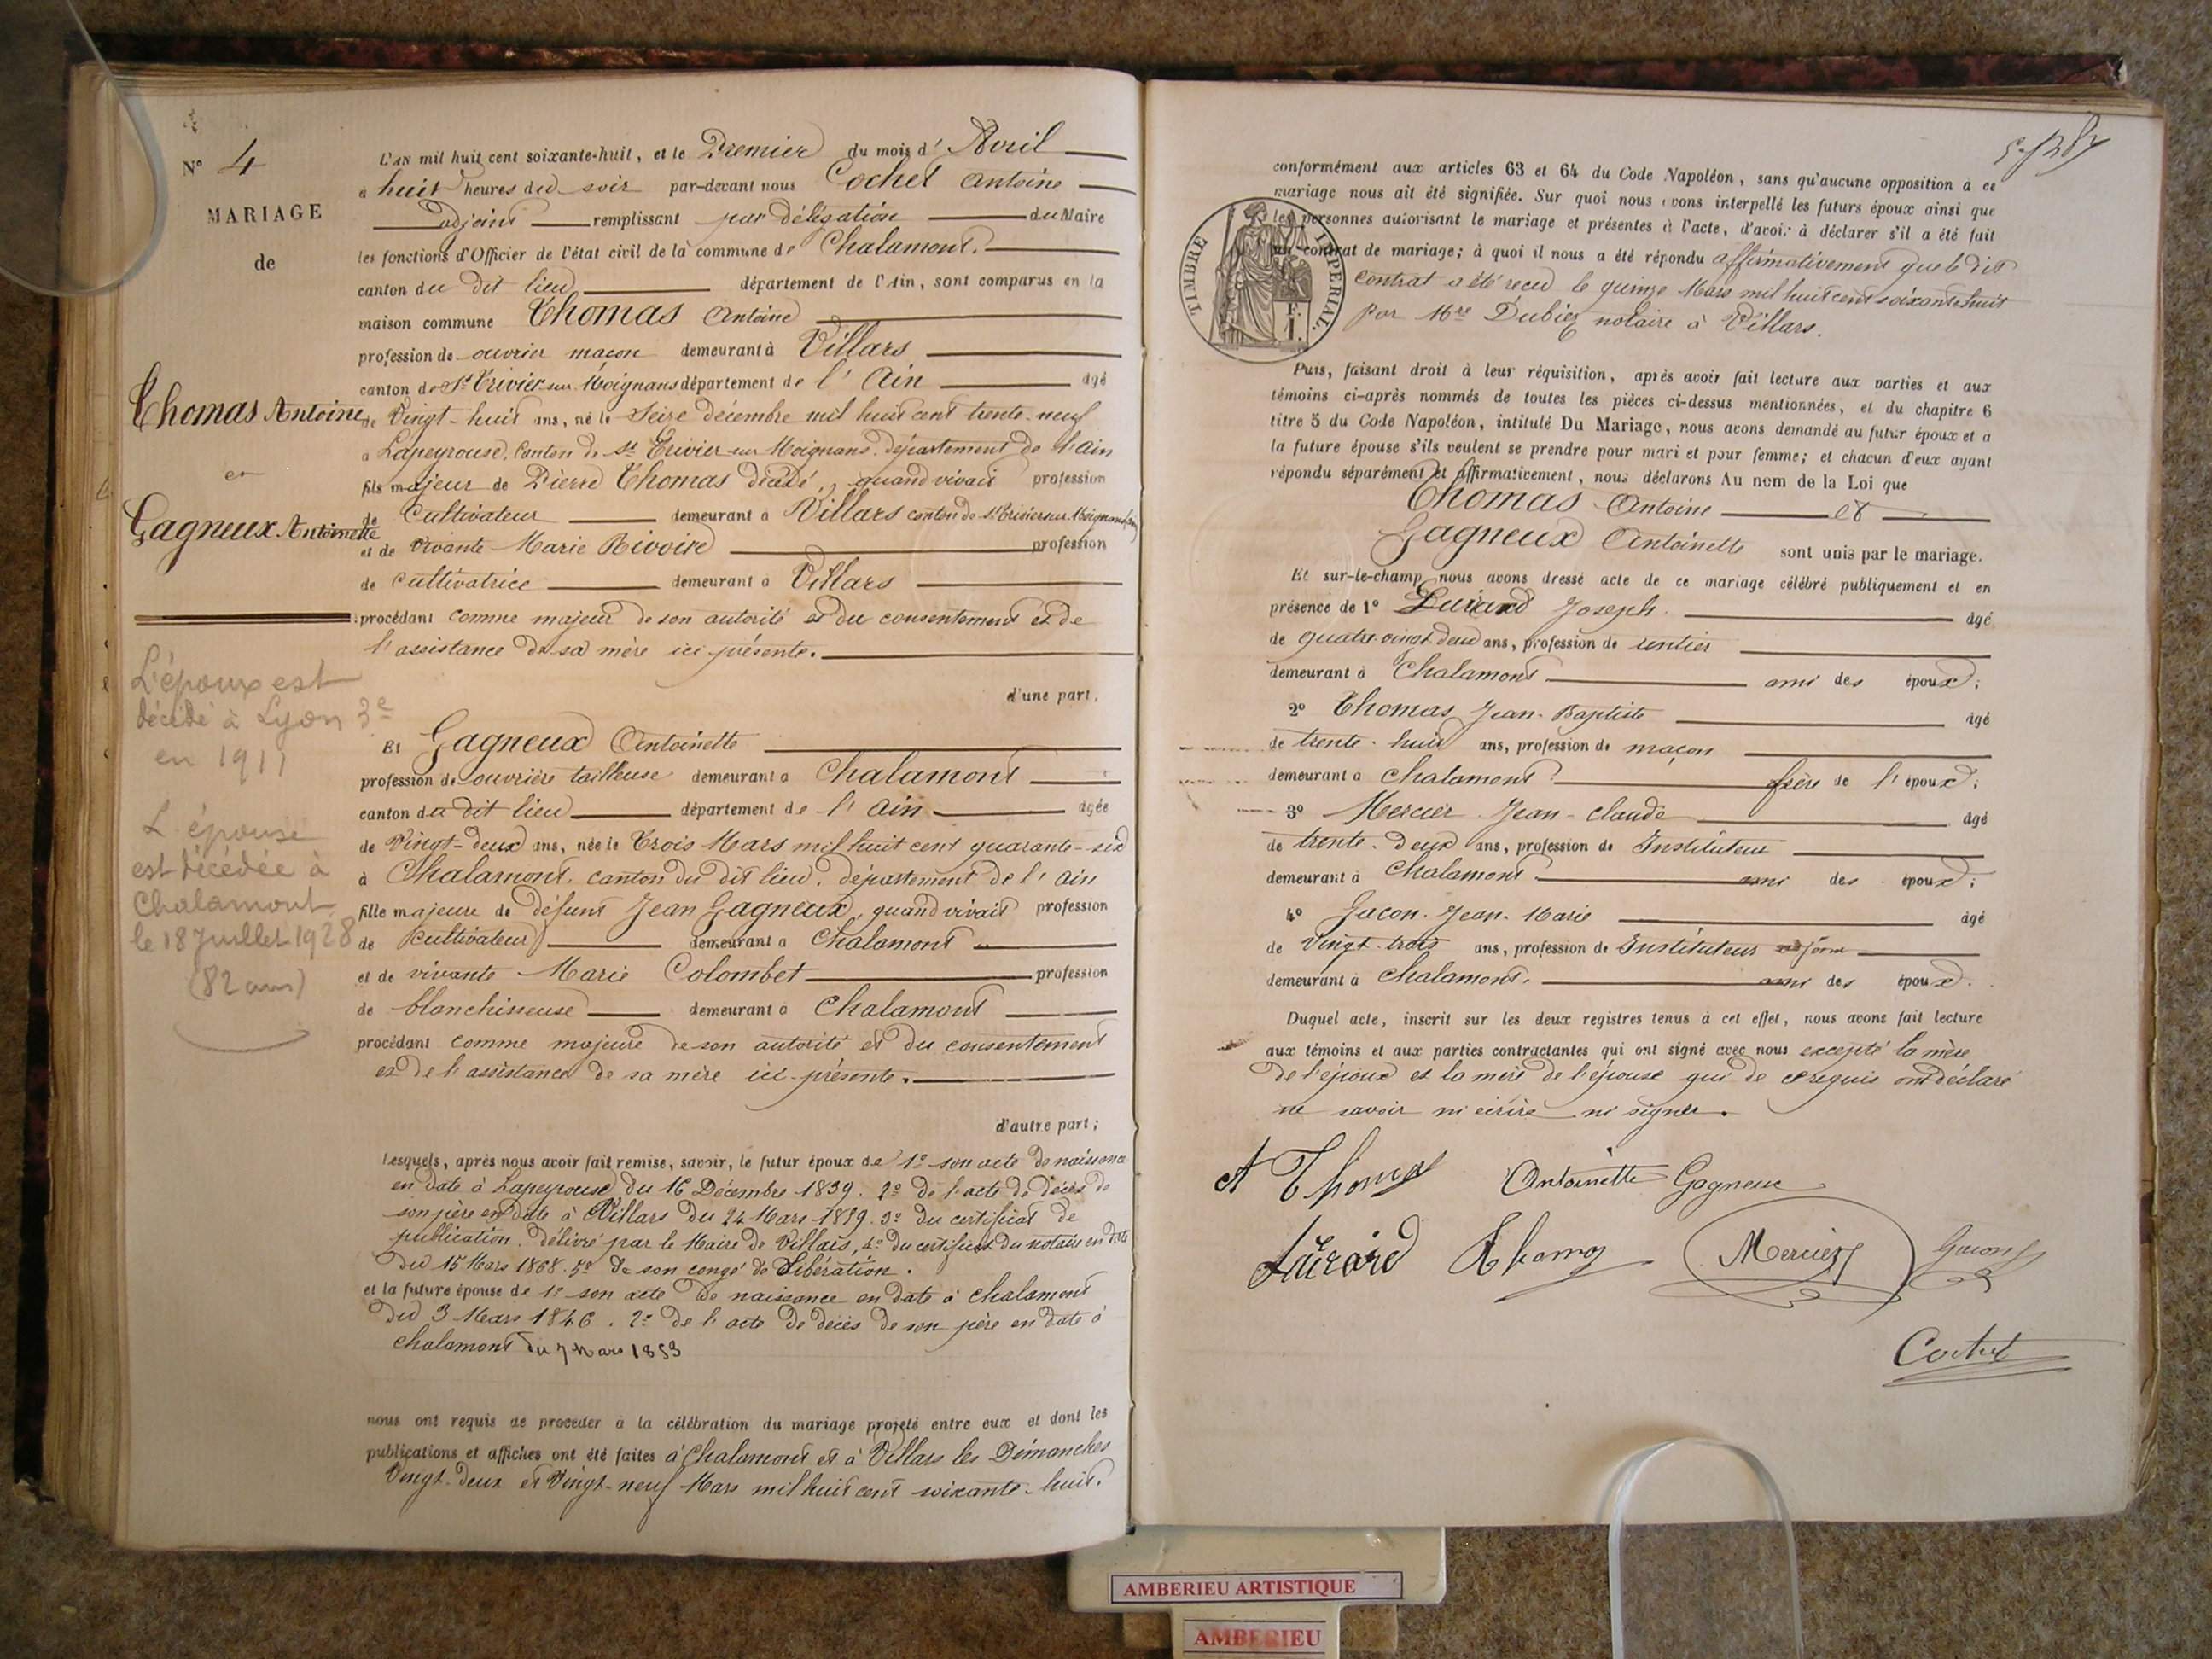 N° 4
MARIAGE
de
Thomas Antoine
et
Gagneux Antoinette
L'époux est
décédé à Lyon 3e
en 1911
L'épouse
est décédée à
Chalamont
le 18 Juillet 1928
(82 ans)
L'AN mil huit cent soixante-huit, et le Premier du mois d' Avril
à huit heures du soir par-devant nous Cochet Antoine
adjoint remplissant par délégation du Maire
les fonctions d'Officier de l'état civil de la commune de Chalamont.
canton du dit lieu département de l'Ain, sont comparus en la
maison commune Thomas Antoine
profession de ouvrier maçon demeurant à Villars
canton de St Trivier sur Moignans département de l'Ain âgé
de Vingt-huit ans, né le Seize décembre mil huit cent trente-neuf
à Lapeyrouse, Canton de St Trivier sur Moignans, département de l'Ain
fils majeur de Pierre Thomas décédé, quand vivait profession
de Cultivateur demeurant à Villars canton de St Trivier sur Moignans
et de vivante Marie Rivoire profession
de cultivatrice demeurant à Villars
procédant comme majeur de son autorité et du consentement et de
l'assistance de sa mère ici présente.
d'une part,
Et Gagneux Antoinette
profession de ouvrière tailleuse demeurant à Chalamont
canton du dit lieu département de l'Ain âgée
de Vingt-deux ans, née le Trois Mars mil huit cent quarante-six
à Chalamont, canton du dit lieu, département de l'Ain
fille majeure de défunt Jean Gagneux, quand vivait profession
de Cultivateur demeurant à Chalamont
et de vivante Marie Colombet profession
de blanchisseuse demeurant à Chalamont
procédant comme majeure de son autorité et du consentement
et de l'assistance de sa mère ici présente.
d'autre part;
Lesquels, après nous avoir fait remise, savoir, le futur époux de 1° son acte de naissance
en date à Lapeyrouse du 16 Décembre 1839. 2° de l'acte de décès de
son père en date à Villars du 24 Mars 1859. 3° du certificat de
publication délivré par le Maire de Villars, 4° du certificat du notaire en date
du 15 Mars 1868. 5° de son congé de Libération.
et la future épouse de 1° son acte de naissance en date à Chalamont
du 3 Mars 1846. 2° de l'acte de décès de son père en date à
Chalamont du 7 Mars 1853
nous ont requis de procéder à la célébration du mariage projeté entre eux et dont les
publications et affiches ont été faites à Chalamont et à Villars les Dimanches
Vingt-deux et Vingt-neuf Mars mil huit cent soixante-huit.
conformément aux articles 63 et 64 du Code Napoléon, sans qu'aucune opposition à ce
mariage nous ait été signifiée. Sur quoi nous avons interpellé les futurs époux ainsi que
les personnes autorisant le mariage et présentes à l'acte, d'avoir à déclarer s'il a été fait
un contrat de mariage; à quoi il nous a été répondu affirmativement que le dit
contrat a été reçu le quinze Mars mil huit cent soixante huit
par Mre Dubiez notaire à Villars.
TIMBRE IMPERIAL
1 F.
Puis, faisant droit à leur réquisition, après avoir fait lecture aux parties et aux
témoins ci-après nommés de toutes les pièces ci-dessus mentionnées, et du chapitre 6
titre 5 du Code Napoléon, intitulé Du Mariage, nous avons demandé au futur époux et à
la future épouse s'ils veulent se prendre pour mari et pour femme; et chacun d'eux ayant
répondu séparément et affirmativement, nous déclarons Au nom de la Loi que
Thomas Antoine et
Gagneux Antoinette sont unis par le mariage.
Et sur-le-champ nous avons dressé acte de ce mariage célébré publiquement et en
présence de 1° Luirard Joseph. âgé
de quatre-vingt deux ans, profession de rentier
demeurant à Chalamont ami des époux;
2° Thomas Jean-Baptiste âgé
de trente-huit ans, profession de maçon
demeurant à Chalamont frère de l'époux;
3° Mercier Jean-Claude âgé
de trente-deux ans, profession de Instituteur
demeurant à Chalamont ami des époux;
4° Gucon Jean-Marie âgé
de vingt-trois ans, profession de Instituteur adjoint
demeurant à Chalamont. ami des époux.
Duquel acte, inscrit sur les deux registres tenus à cet effet, nous avons fait lecture
aux témoins et aux parties contractantes qui ont signé avec nous excepté la mère
de l'époux et la mère de l'épouse qui de ce requis ont déclaré
ne savoir ni écrire ni signer.
A Thomas Antoinette Gagneux
Luirard Thomas Mercier Gucon
Cochet
AMBERIEU ARTISTIQUE
AMBERIEU